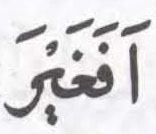 اَفَغَيْرَ